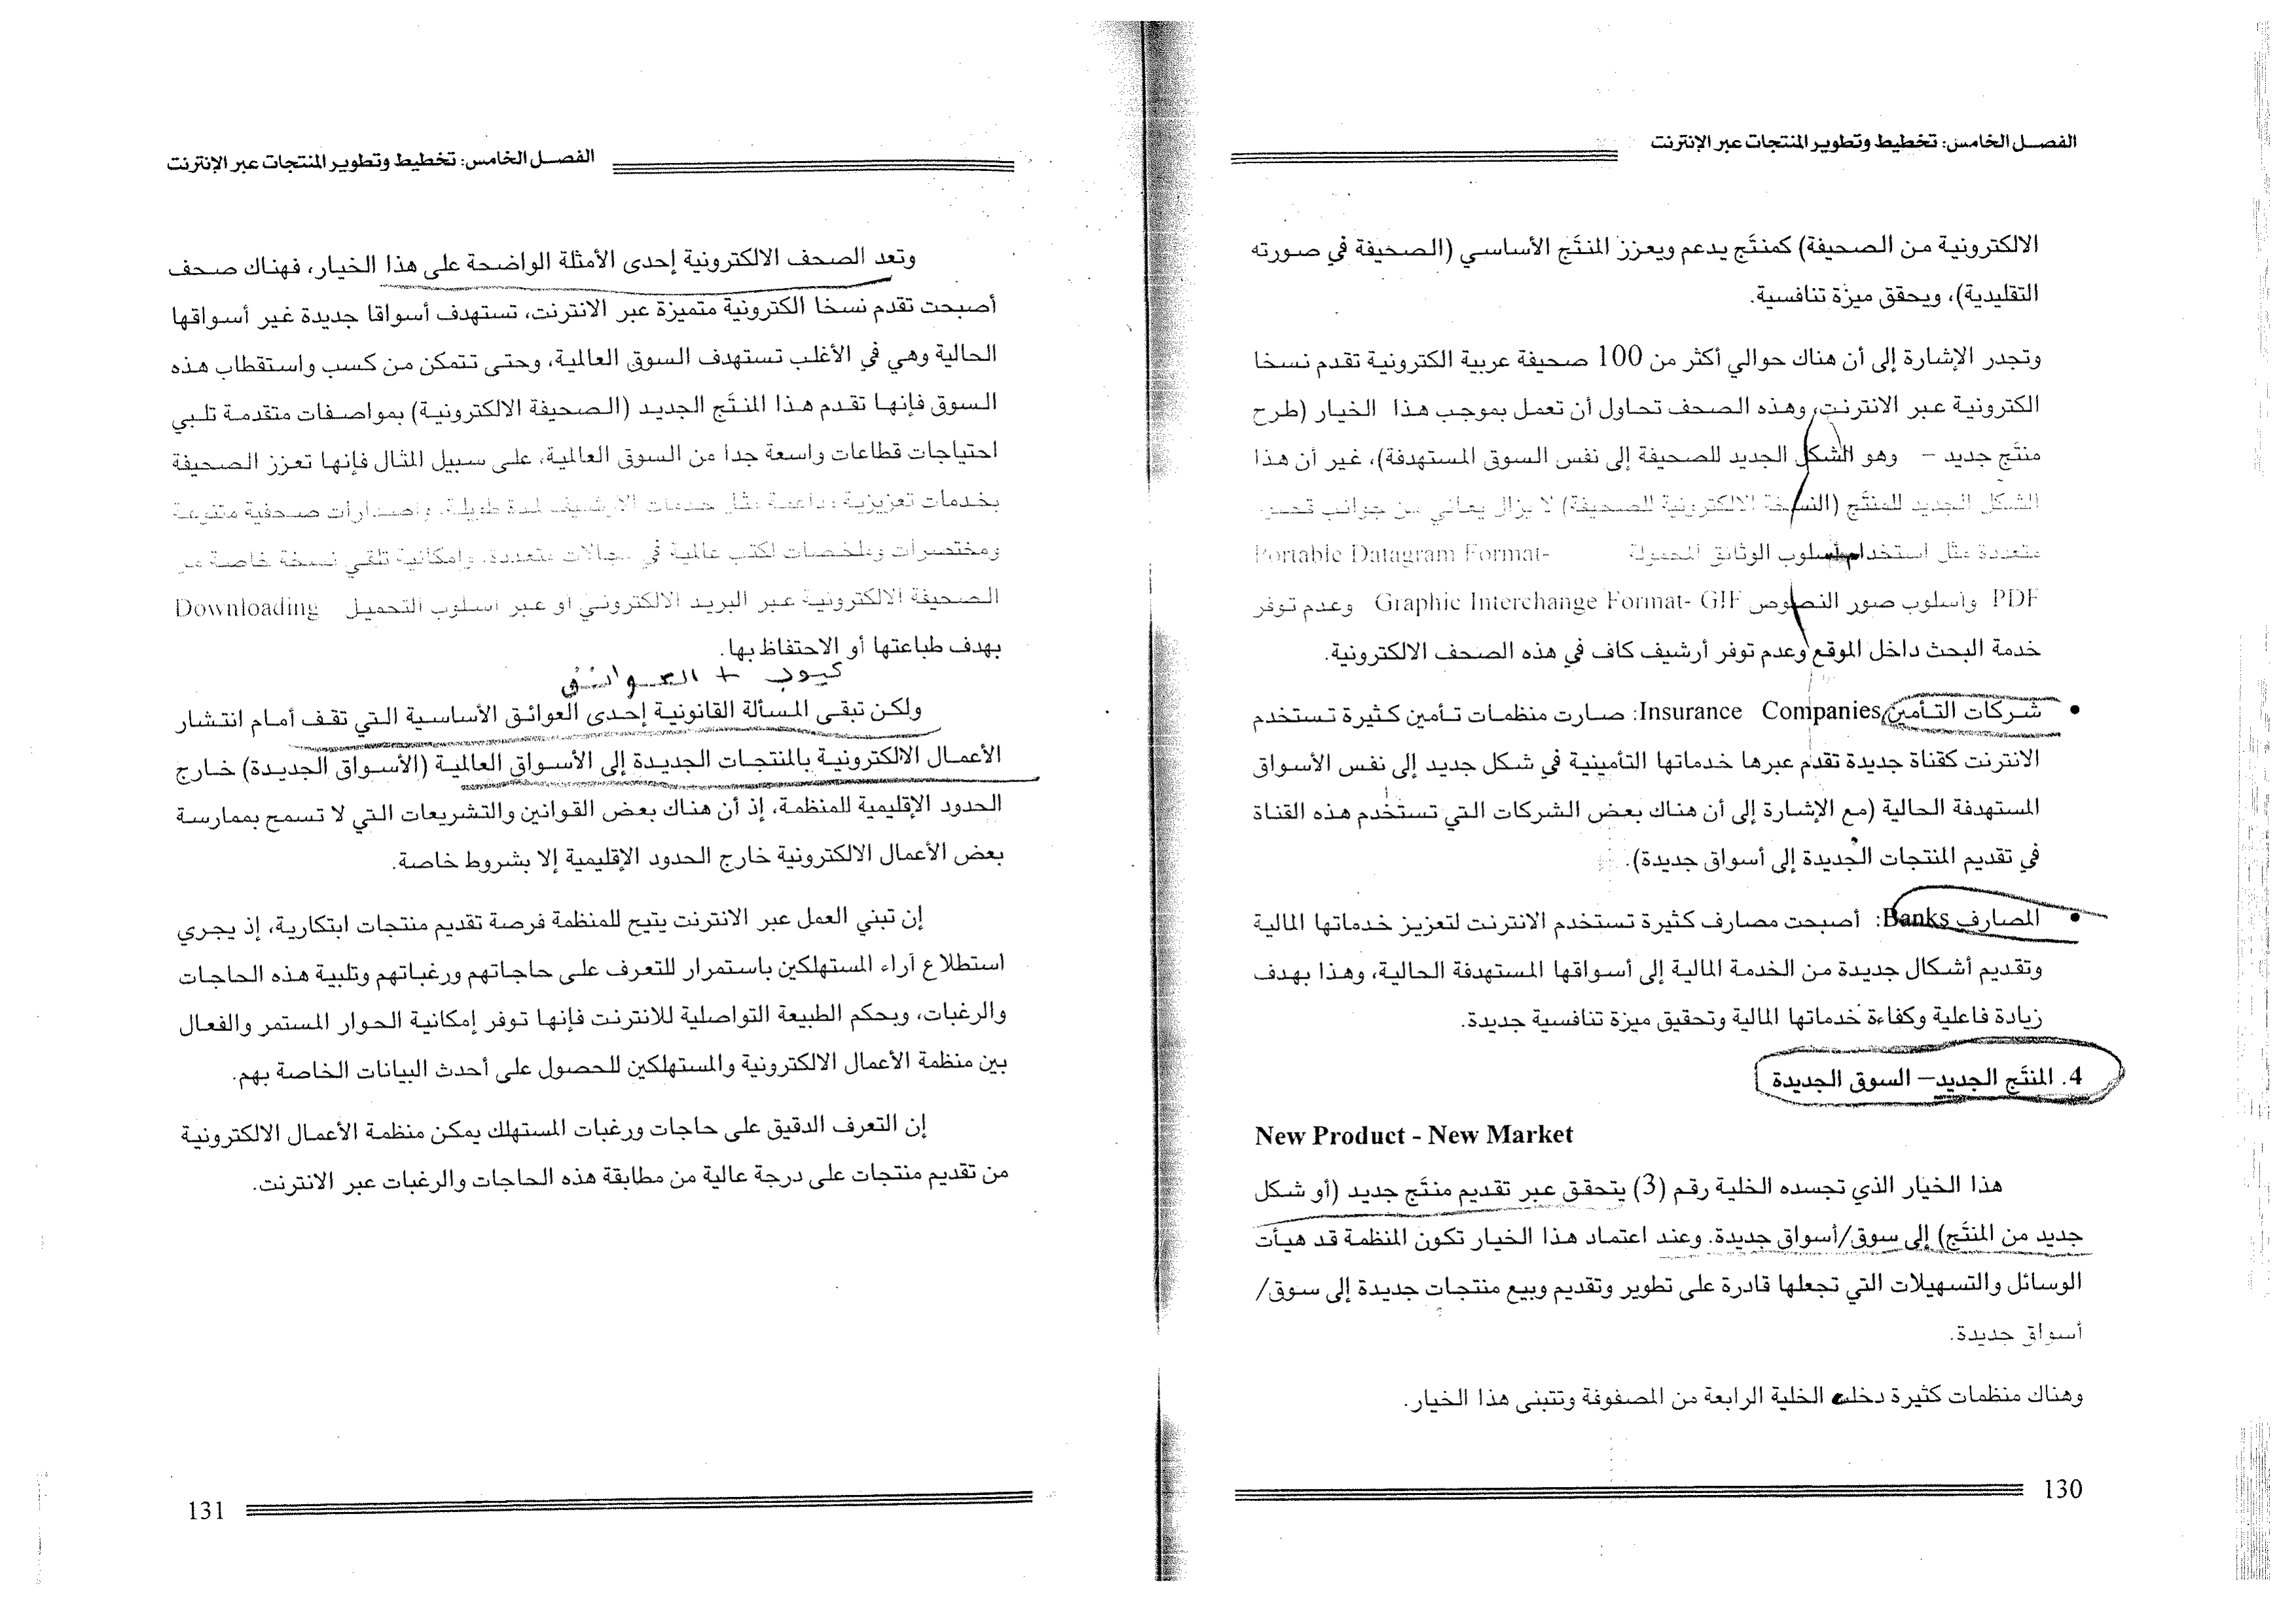 الفصل الخامس: تخطيط وتطوير المنتجات عبر الإنترنت
الالكترونية من الصحيفة) كمنتَج يدعم ويعزز المنتَج الأساسي (الصحيفة في صورته
التقليدية)، ويحقق ميزة تنافسية.
وتجدر الإشارة إلى أن هناك حوالي أكثر من 100 صحيفة عربية الكترونية تقدم نسخا
الكترونية عبر الانترنت، وهذه الصحف تحاول أن تعمل بموجب هذا الخيار (طرح
منتَج جديد – وهو الشكل الجديد للصحيفة إلى نفس السوق المستهدفة)، غير أن هذا
الشكل الجديد للمنتَج (النسخة الالكترونية للصحيفة) لا يزال يعاني من جوانب
متعددة مثل استخدام أسلوب الوثائق المحمولة Portable Datagram Format-
PDF وأسلوب صور النصوص Graphic Interchange Format- GIF وعدم توفر
خدمة البحث داخل الموقع وعدم توفر أرشيف كاف في هذه الصحف الالكترونية.
• شركات التأمين Insurance Companies: صارت منظمات تأمين كثيرة تستخدم
الانترنت كقناة جديدة تقدم عبرها خدماتها التأمينية في شكل جديد إلى نفس الأسواق
المستهدفة الحالية (مع الإشارة إلى أن هناك بعض الشركات التي تستخدم هذه القناة
في تقديم المنتجات الجديدة إلى أسواق جديدة).
• المصارف Banks: أصبحت مصارف كثيرة تستخدم الانترنت لتعزيز خدماتها المالية
وتقديم أشكال جديدة من الخدمة المالية إلى أسواقها المستهدفة الحالية، وهذا بهدف
زيادة فاعلية وكفاءة خدماتها المالية وتحقيق ميزة تنافسية جديدة.
4. المنتَج الجديد – السوق الجديدة
New Product - New Market
هذا الخيار الذي تجسده الخلية رقم (3) يتحقق عبر تقديم منتَج جديد (أو شكل
جديد من المنتَج) إلى سوق/أسواق جديدة. وعند اعتماد هذا الخيار تكون المنظمة قد هيأت
الوسائل والتسهيلات التي تجعلها قادرة على تطوير وتقديم وبيع منتجات جديدة إلى سوق/
أسواق جديدة.
وهناك منظمات كثيرة دخلت الخلية الرابعة من المصفوفة وتتبنى هذا الخيار.
130
الفصل الخامس: تخطيط وتطوير المنتجات عبر الإنترنت
وتعد الصحف الالكترونية إحدى الأمثلة الواضحة على هذا الخيار، فهناك صحف
أصبحت تقدم نسخا الكترونية متميزة عبر الانترنت، تستهدف أسواقا جديدة غير أسواقها
الحالية وهي في الأغلب تستهدف السوق العالمية، وحتى تتمكن من كسب واستقطاب هذه
السوق فإنها تقدم هذا المنتَج الجديد (الصحيفة الالكترونية) بمواصفات متقدمة تلبي
احتياجات قطاعات واسعة جدا من السوق العالمية، على سبيل المثال فإنها تعزز الصحيفة
بخدمات تعزيزية داعمة مثل خدمات الأرشيف لمدة طويلة، وإصدارات صحفية متنوعة
ومختصرات وملخصات لكتب عالمية في مجالات متعددة، وإمكانية تلقي نسخة خاصة من
الصحيفة الالكترونية عبر البريد الالكتروني أو عبر أسلوب التحميل Downloading
بهدف طباعتها أو الاحتفاظ بها.
+ العوائق
ولكن تبقى المسألة القانونية إحدى العوائق الأساسية التي تقف أمام انتشار
الأعمال الالكترونية بالمنتجات الجديدة إلى الأسواق العالمية (الأسواق الجديدة) خارج
الحدود الإقليمية للمنظمة، إذ أن هناك بعض القوانين والتشريعات التي لا تسمح بممارسة
بعض الأعمال الالكترونية خارج الحدود الإقليمية إلا بشروط خاصة.
إن تبني العمل عبر الانترنت يتيح للمنظمة فرصة تقديم منتجات ابتكارية، إذ يجري
استطلاع آراء المستهلكين باستمرار للتعرف على حاجاتهم ورغباتهم وتلبية هذه الحاجات
والرغبات، وبحكم الطبيعة التواصلية للانترنت فإنها توفر إمكانية الحوار المستمر والفعال
بين منظمة الأعمال الالكترونية والمستهلكين للحصول على أحدث البيانات الخاصة بهم.
إن التعرف الدقيق على حاجات ورغبات المستهلك يمكن منظمة الأعمال الالكترونية
من تقديم منتجات على درجة عالية من مطابقة هذه الحاجات والرغبات عبر الانترنت.
131